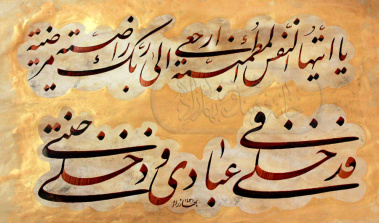 یا ایتها النفس المطمئنة ارجعی الی ربک راضیة مرضیة
فادخلی فی عبادی و ادخلی جنتی